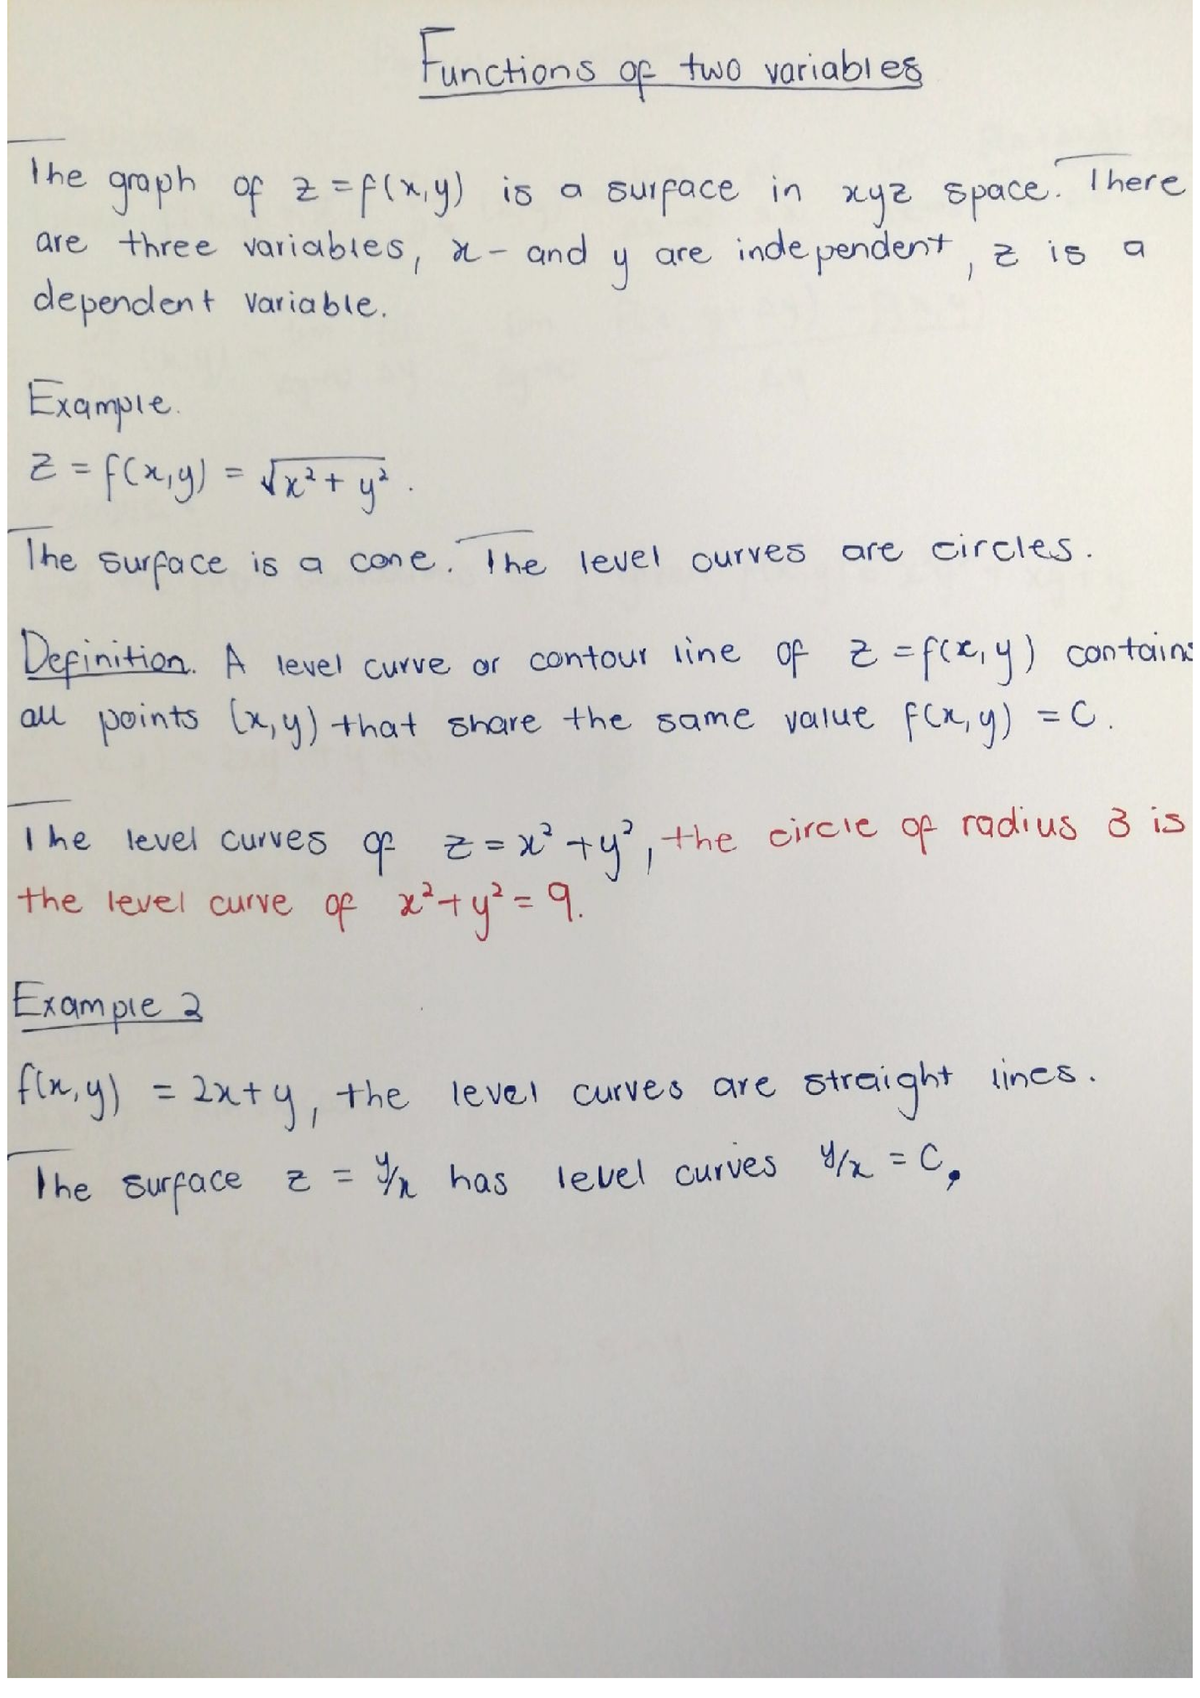 Functions of two variables
The graph of z = f(x,y) is a surface in xyz space. There
are three variables, x - and y are independent, z is a
dependent variable.
Example.
z = f(x,y) = √x² + y² .
The surface is a cone. The level curves are circles.
Definition. A level curve or contour line of z = f(x,y) contains
all points (x,y) that share the same value f(x,y) = C.
The level curves of z = x² + y², the circle of radius 3 is
the level curve of x² + y² = 9.
Example 2
f(x,y) = 2x + y, the level curves are straight lines.
The surface z = y/x has level curves y/x = C.